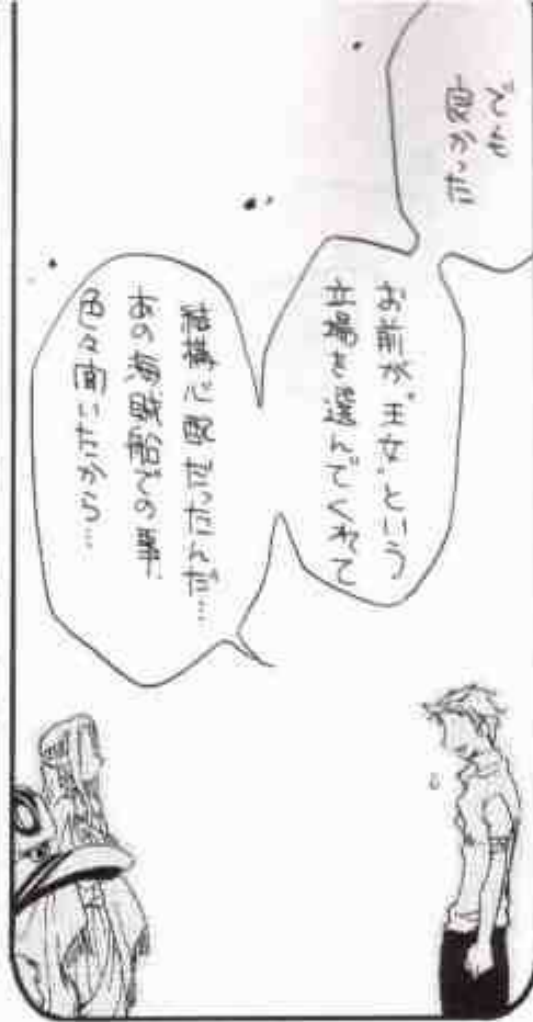 でも
良かった
お前が“王女”という
立場を選んでくれて
結構心配だったんだ…
あの海賊船での事、
色々聞いたから…